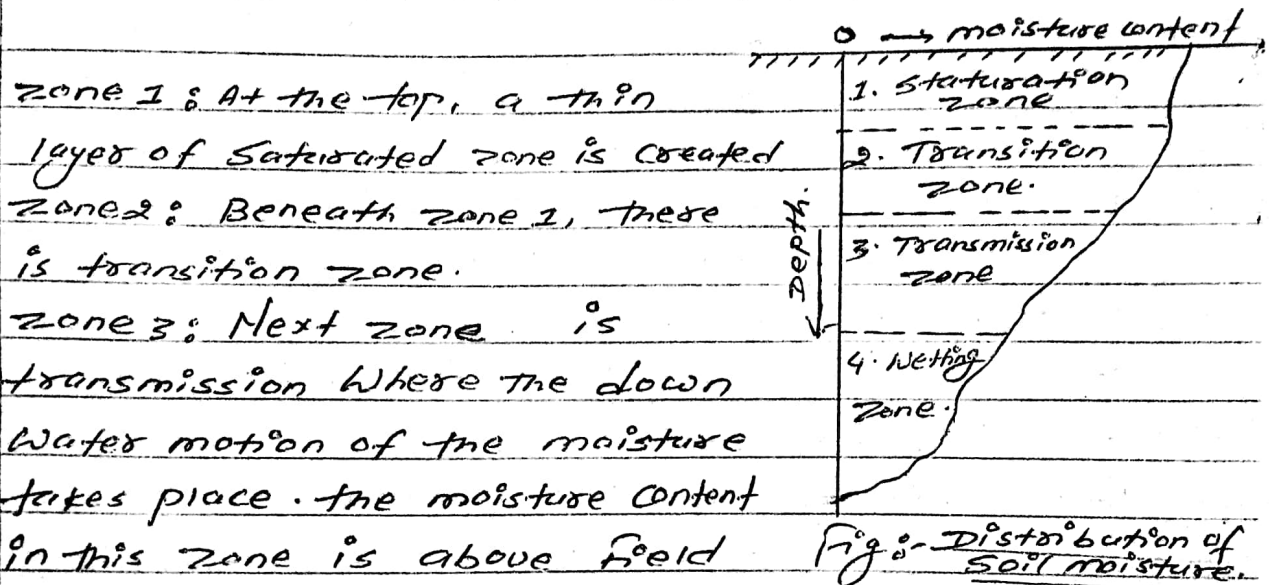 0 → moisture content
zone 1 : At the top, a thin
layer of saturated zone is created
zone 2 : Beneath zone 1, there
is transition zone.
zone 3 : Next zone is
transmission where the down
water motion of the moisture
takes place. the moisture content
in this zone is above Field
1. Staturation
zone
2. Transition
zone.
3. Transmission
zone
4. Wetting
zone.
Depth.
Fig :- Distribution of
Soil moisture.